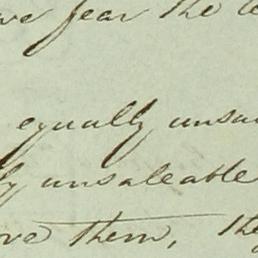 we fear the
equally unsa
y unsaleable
ve them, the